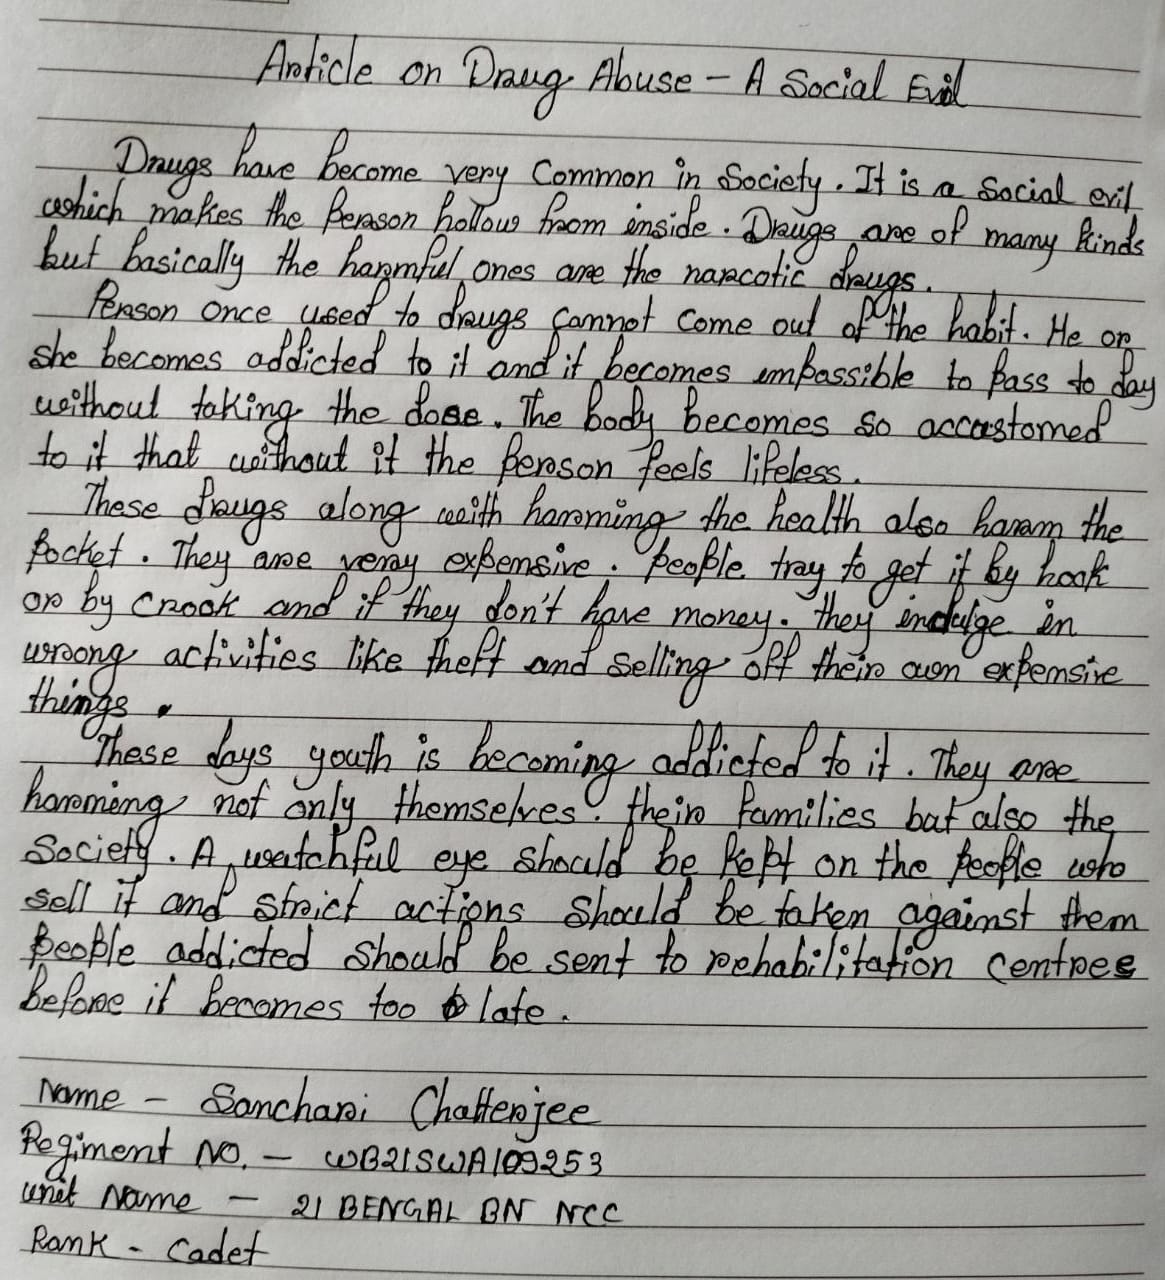 Article on Drug Abuse - A Social Evil
Drugs have become very Common in Society. It is a Social evil
which makes the Person hollow from inside. Drugs are of many kinds
but basically the harmful ones are the narcotic drugs.
Person once used to drugs cannot come out of the habit. He or
she becomes addicted to it and it becomes impossible to pass to day
without taking the dose. The body becomes so accustomed
to it that without it the person feels lifeless.
These drugs along with harming the health also haram the
Pocket. They are very expensive. People tray to get it by hook
or by crook and if they don't have money. they indulge in
wrong activities like theft and selling off their own expensive
things.
These days youth is becoming addicted to it. They are
harming not only themselves. their families but also the
Society. A watchful eye should be kept on the people who
sell it and strict actions should be taken against them
People addicted should be sent to rehabilitation centres
before it becomes too late.
Name - Sanchari Chatterjee
Regiment No. - WB21SWA109253
Unit Name - 21 BENGAL BN NCC
Rank - Cadet